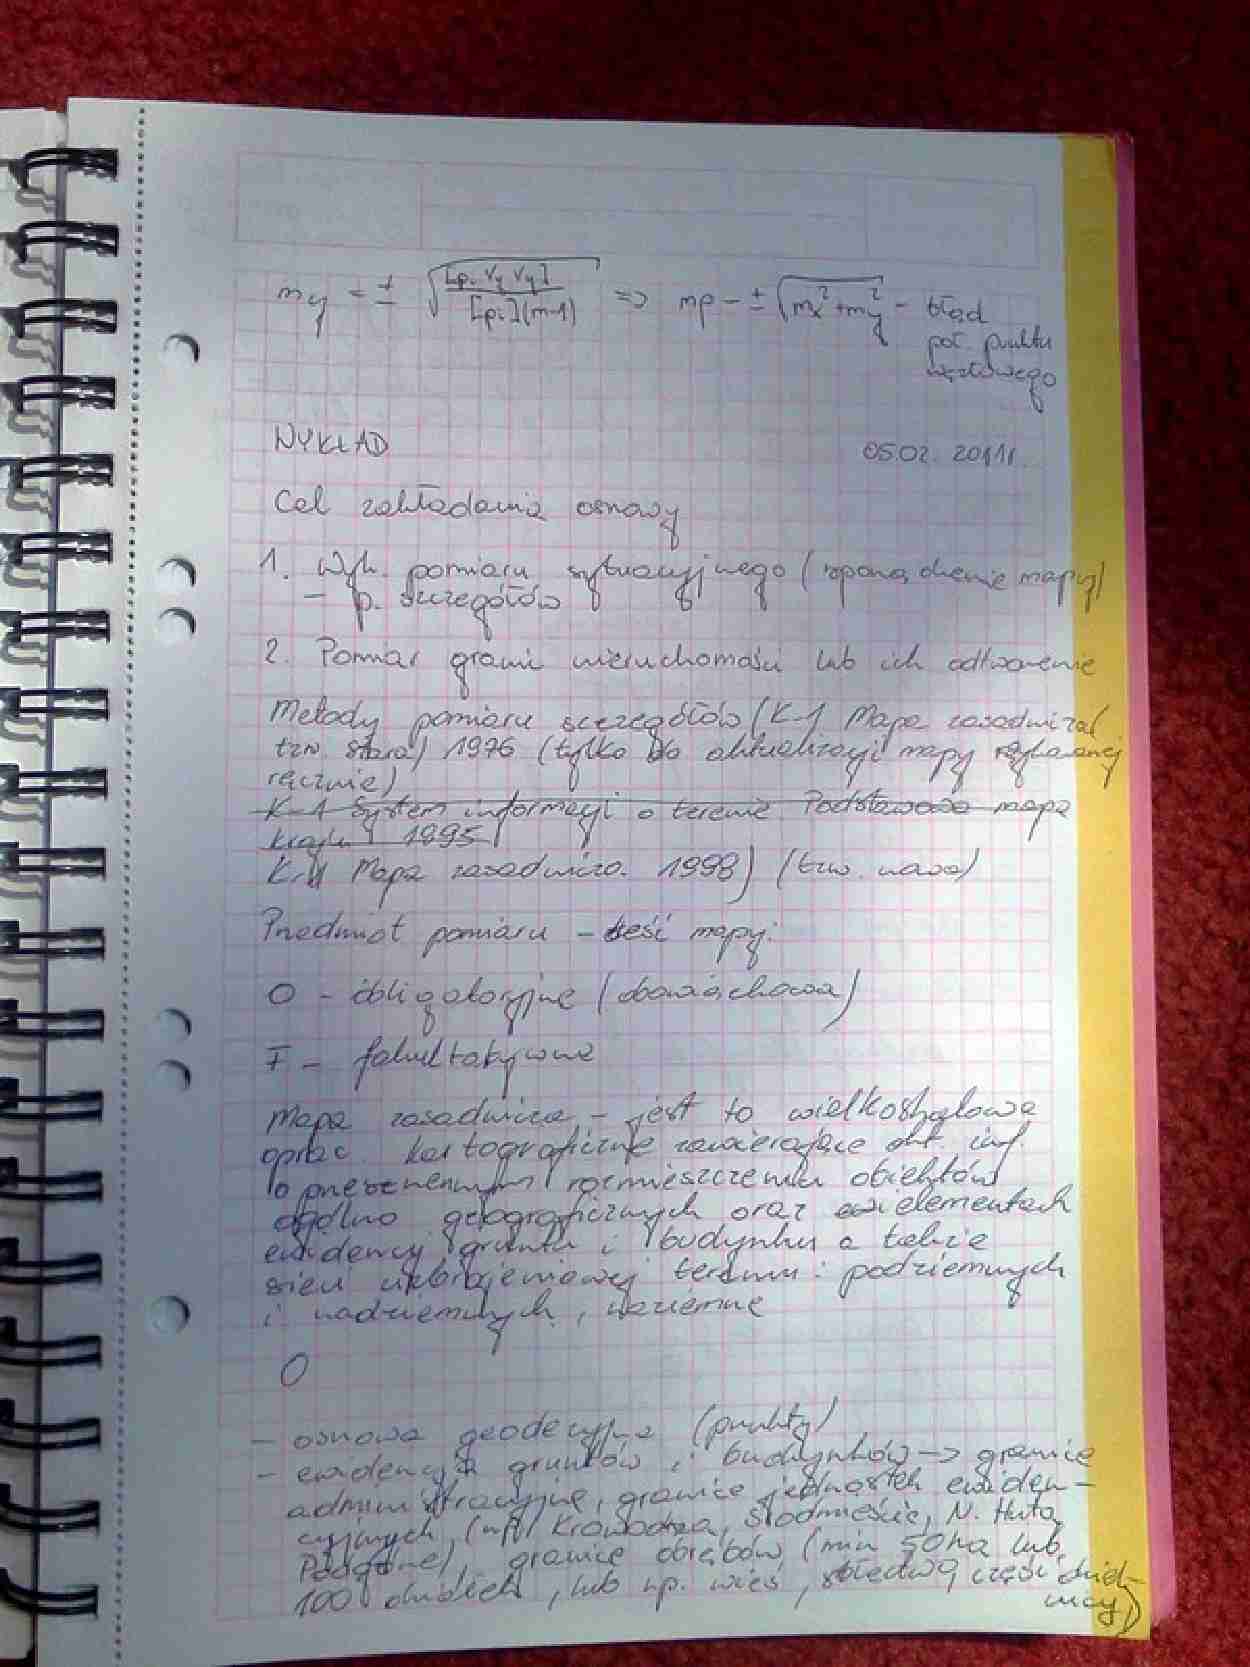 my = ± √([pi Vy Vy] / [pi](n-1)) => mp - ± √(mx² + my²) - błąd
poł. punktu
węzłowego
WYKŁAD 05.02.2011r.
Cel zakładania osnowy
1. Wyk. pomiaru sytuacyjnego (sporządzenie mapy)
- p. szczegółów
2. Pomiar granic nieruchomości lub ich odtworzenie
Metody pomiaru szczegółów (K-1 Mapa zasadnicza (
tzw. stara) 1976 (tylko do aktualizacji mapy
ręcznie)
K-1 System informacji o terenie Podstawowa mapa
kraju 1995
K-1 Mapa zasadnicza. 1998) (tzw. nowa)
Przedmiot pomiaru - treść mapy:
O - obligatoryjne (obowiązkowa)
F - fakultatywne
Mapa zasadnicza - jest to wielkoskalowe
oprac. kartograficzne zawierające akt. inf.
o przestrzennym rozmieszczeniu obiektów
ogólno geograficznych oraz elementach
ewidencji gruntu i budynku a także
sieci uzbrojeniowej terenu: podziemnych
i nadziemnych, naziemne
O
- osnowa geodezyjna (punkty)
- ewidencja gruntów i budynków -> granice
administracyjne, granice jednostek ewiden-
cyjnych (np. Krowodrza, Śródmieście, N. Huta,
Podgórze), granice obrębów (min 50ha lub
100 działek, lub np. wieś, części dziel-
nicy)